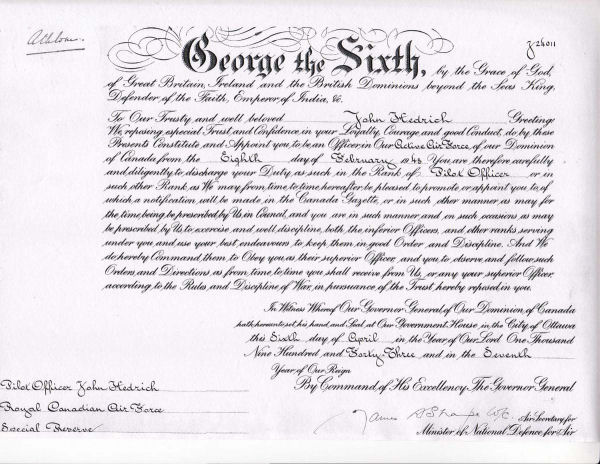 Athlone.
J 26011
George the Sixth, by the Grace of God,
of Great Britain, Ireland and the British Dominions beyond the Seas King,
Defender of the Faith, Emperor of India, &c.
To Our Trusty and well beloved John Hedrich Greeting:
We, reposing especial Trust and Confidence in your Loyalty, Courage and good Conduct, do by these
Presents Constitute and Appoint you to be an Officer in Our Active Air Force of our Dominion
of Canada from the Eighth day of February 1943 You are therefore carefully
and diligently to discharge your Duty as such in the Rank of Pilot Officer or in
such other Rank as We may from time to time hereafter be pleased to promote or appoint you to, of
which a notification will be made in the Canada Gazette, or in such other manner as may for
the time being be prescribed by Us in Council, and you are in such manner and on such occasions as may
be prescribed by Us to exercise and well discipline, both the inferior Officers, and other ranks serving
under you and use your best endeavours to keep them in good Order and Discipline. And We
do hereby Command them to Obey you as their superior Officer, and you to observe and follow such
Orders and Directions as from time to time you shall receive from Us, or any your superior Officer,
according to the Rules and Discipline of War, in pursuance of the Trust hereby reposed in you.
In Witness Whereof Our Governor General of Our Dominion of Canada
hath hereunto set his hand and Seal at Our Government House in the City of Ottawa
this Sixth day of April in the Year of Our Lord One Thousand
Nine Hundred and Forty-Three and in the Seventh
Year of Our Reign
By Command of His Excellency The Governor General
Pilot Officer John Hedrich
Royal Canadian Air Force
Special Reserve
James Air Secretary for
Minister of National Defence for Air